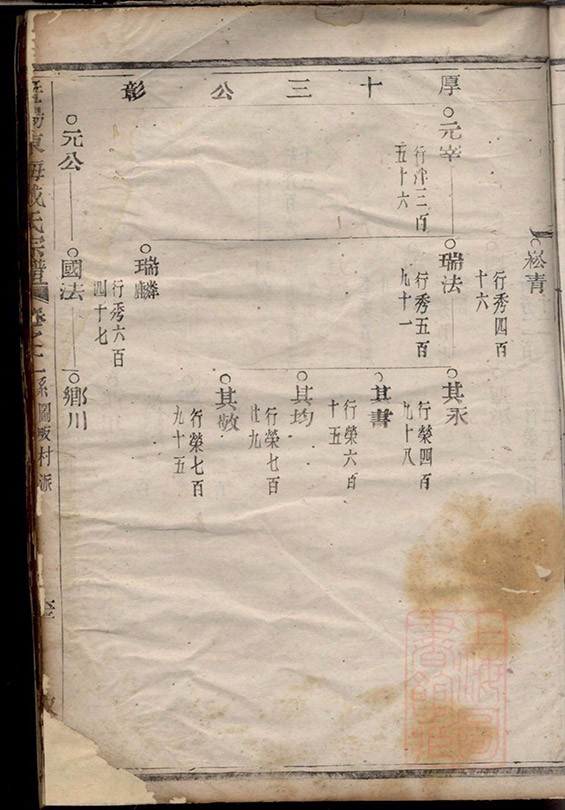 崧青
行秀四百
十六
厚十三公彰
元宰
行津三百
五十六
瑞法
行秀五百
九十一
其永
行榮四百
九十八
其書
行榮六百
十五
其均
行榮七百
廿九
其敬
行榮七百
九十五
瑞麟
行秀六百
四十七
元公
國法
鄉川
東海
氏宗譜
卷之
系圖
村派